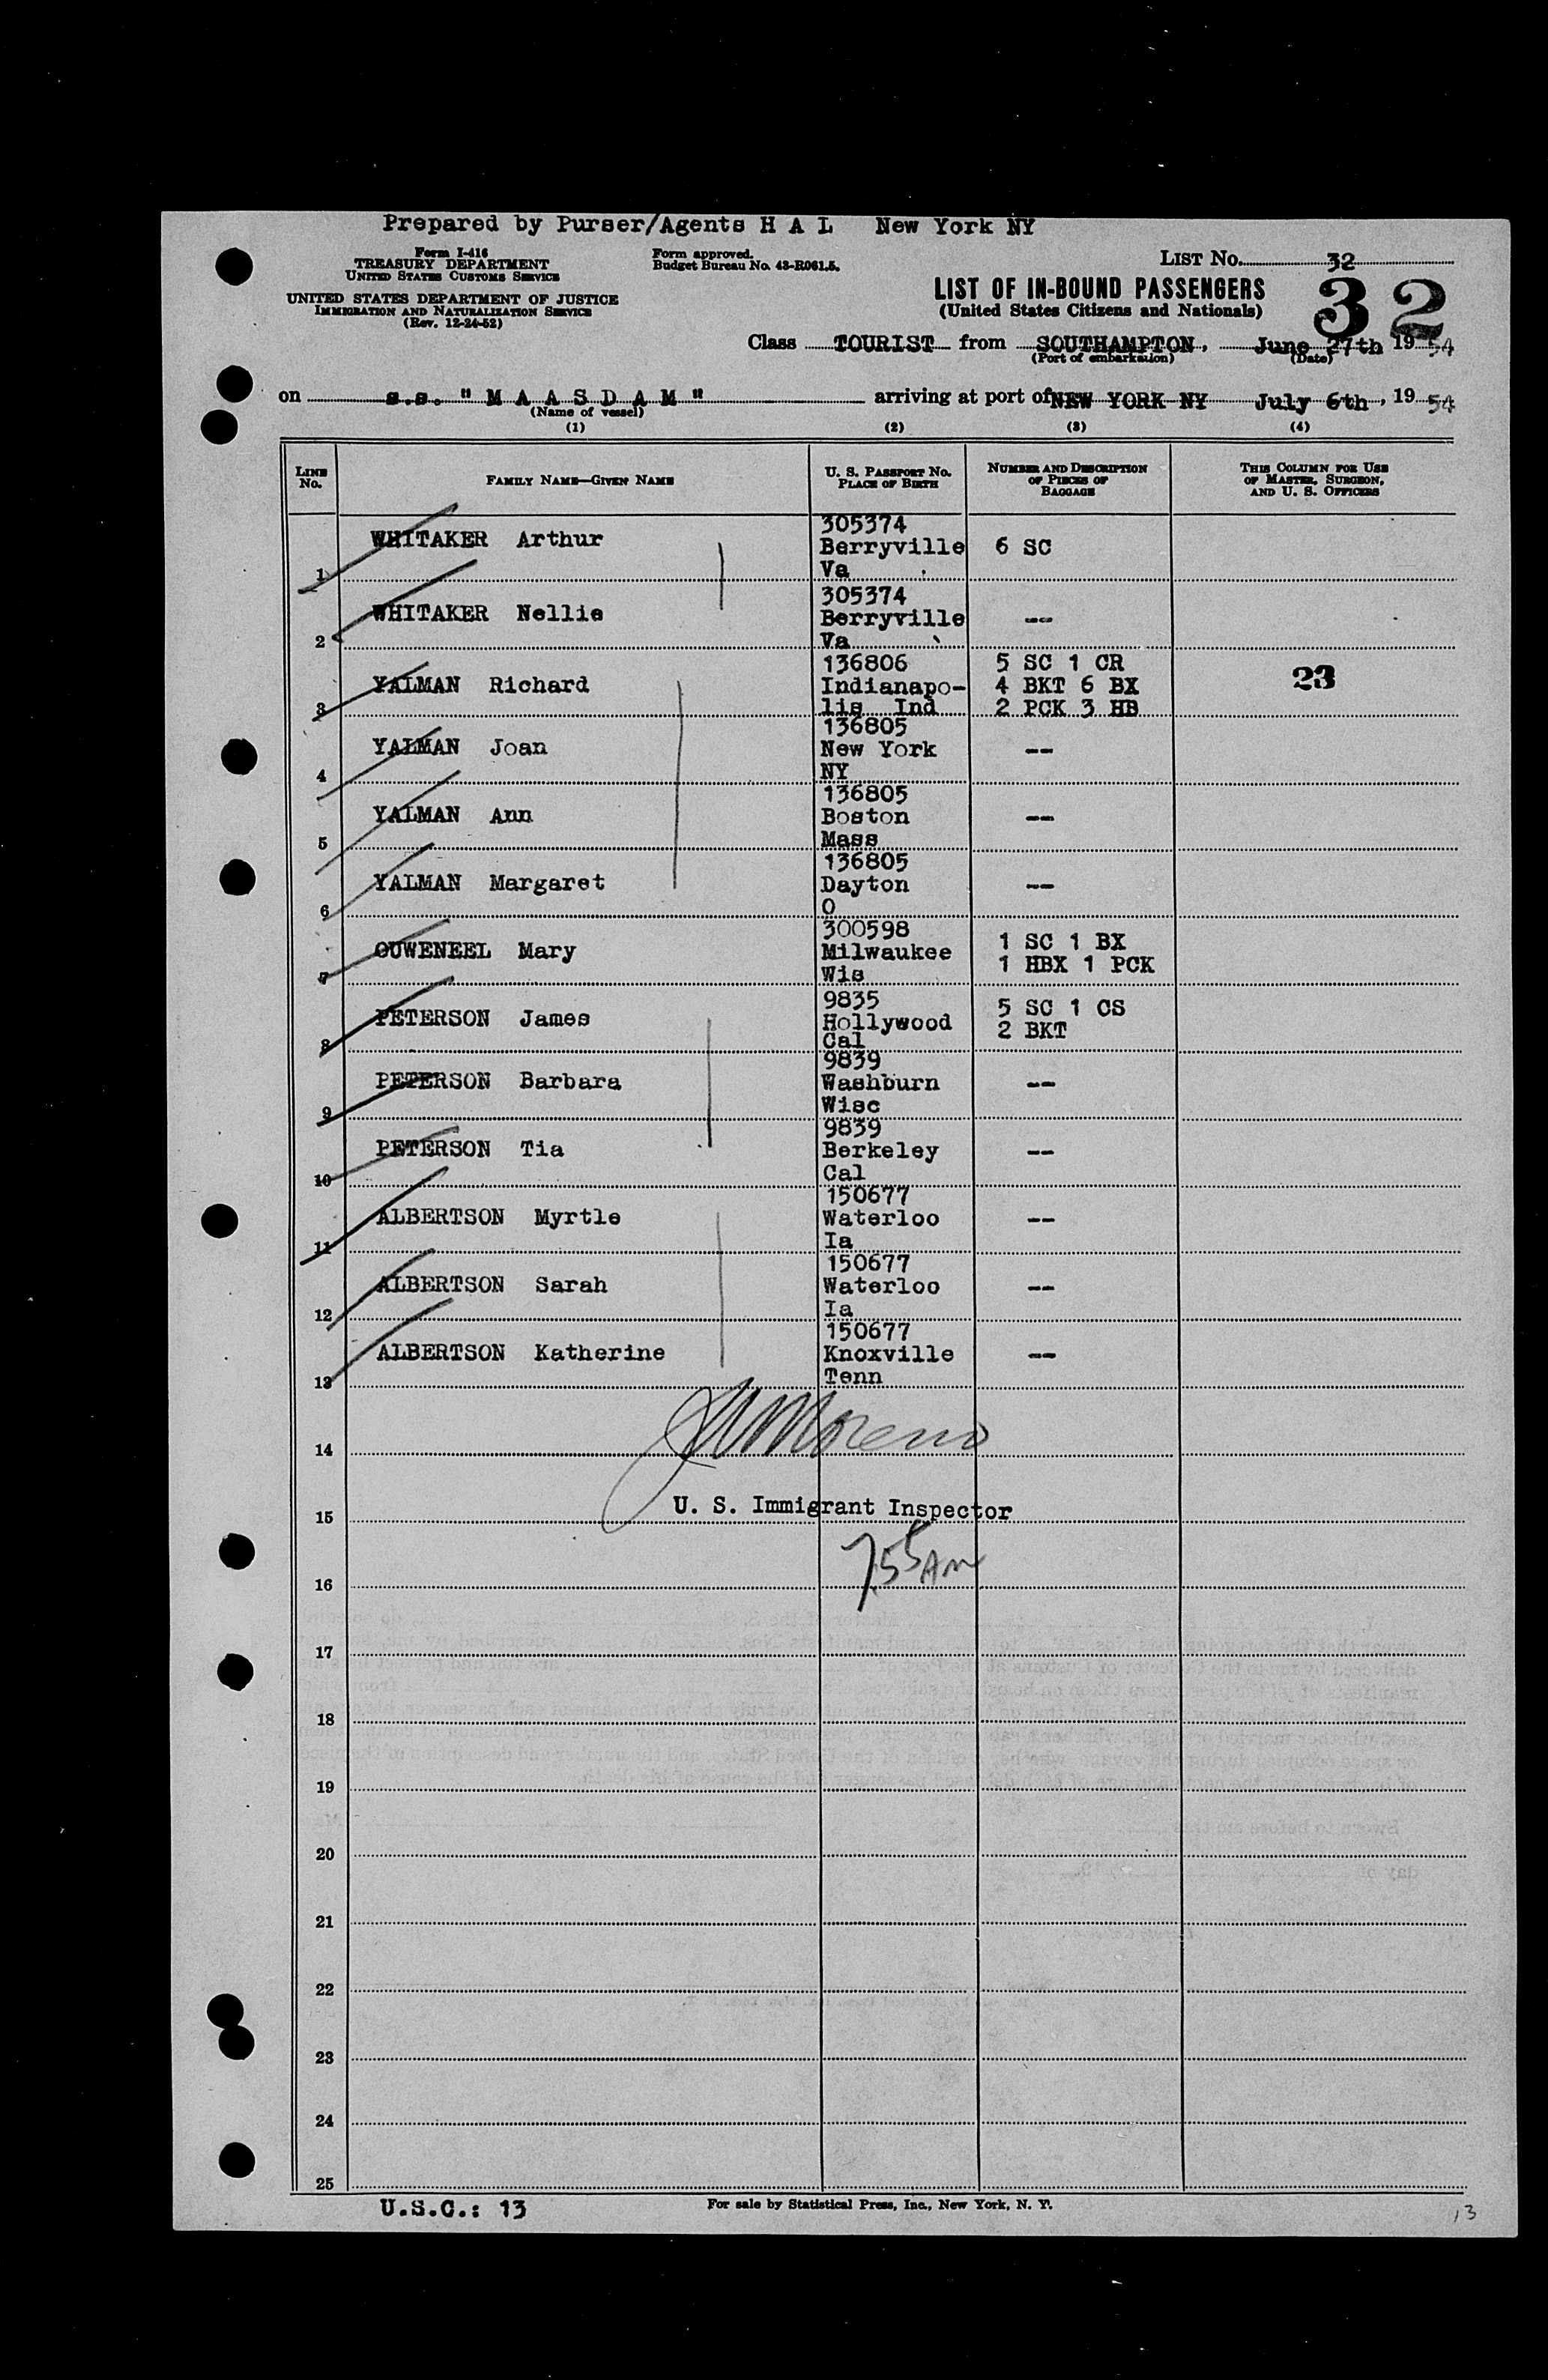 Prepared by Purser/Agents H A L New York NY
Form I-416
TREASURY DEPARTMENT
UNITED STATES CUSTOMS SERVICE
UNITED STATES DEPARTMENT OF JUSTICE
IMMIGRATION AND NATURALIZATION SERVICE
(Rev. 12-24-52)
Form approved.
Budget Bureau No. 43-R061.5.
LIST No. 32
LIST OF IN-BOUND PASSENGERS
(United States Citizens and Nationals)
32
Class TOURIST from SOUTHAMPTON, June 27th 1954
(Port of embarkation) (Date)
on s.s. "M A A S D A M" arriving at port of NEW YORK NY July 6th, 1954
(Name of vessel)
(1) (2) (3) (4)
LINE No.
FAMILY NAME—GIVEN NAME
U. S. PASSPORT No.
PLACE OF BIRTH
NUMBER AND DESCRIPTION
OF PIECES OF
BAGGAGE
THIS COLUMN FOR USE
OF MASTER, SURGEON,
AND U. S. OFFICERS
305374
WHITAKER Arthur Berryville 6 SC
1 Va
305374
WHITAKER Nellie Berryville --
2 Va
136806 5 SC 1 CR
YALMAN Richard Indianapo- 4 BKT 6 BX 23
3 lis Ind 2 PCK 3 HB
136805
YALMAN Joan New York --
4 NY
136805
YALMAN Ann Boston --
5 Mass
136805
YALMAN Margaret Dayton --
6 O
300598 1 SC 1 BX
OUWENEEL Mary Milwaukee 1 HBX 1 PCK
7 Wis
9835 5 SC 1 CS
PETERSON James Hollywood 2 BKT
8 Cal
9839
PETERSON Barbara Washburn --
9 Wisc
9839
PETERSON Tia Berkeley --
10 Cal
150677
ALBERTSON Myrtle Waterloo --
11 Ia
150677
ALBERTSON Sarah Waterloo --
12 Ia
150677
ALBERTSON Katherine Knoxville --
13 Tenn
Moreno
14
U. S. Immigrant Inspector
15
7.55 AM
16
17
18
19
20
21
22
23
24
25
U.S.C.: 13 For sale by Statistical Press, Inc., New York, N. Y.
13